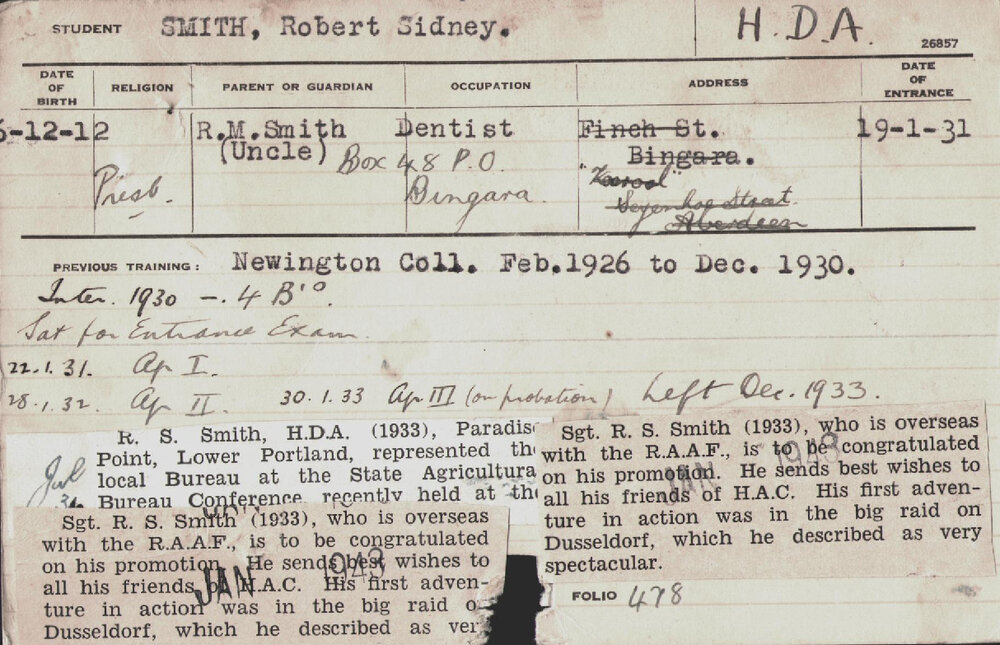 STUDENT SMITH, Robert Sidney. H.D.A. 26857
DATE OF BIRTH RELIGION PARENT OR GUARDIAN OCCUPATION ADDRESS DATE OF ENTRANCE
-12-12 R.M.Smith Dentist Finch St. 19-1-31
(Uncle) Box 48 P.O. Bingara.
Presb. Bingara.
Street
Aberdeen
PREVIOUS TRAINING: Newington Coll. Feb.1926 to Dec. 1930.
Inter. 1930 -. 4 B's.
Sat for Entrance Exam.
22.1.31. Ag I.
28.1.32. Ag II. 30.1.33 Ag III (on probation) Left Dec. 1933.
R. S. Smith, H.D.A. (1933), Paradise
Point, Lower Portland, represented the
local Bureau at the State Agricultura
Bureau Conference, recently held at the
Sgt. R. S. Smith (1933), who is overseas
with the R.A.A.F., is to be congratulated
on his promotion. He sends best wishes to
all his friends of H.A.C. His first adven-
ture in action was in the big raid on
Dusseldorf, which he described as very
spectacular.
JAN 1943
Sgt. R. S. Smith (1933), who is overseas
with the R.A.A.F., is to be congratulated
on his promotion. He sends best wishes to
all his friends of H.A.C. His first adven-
ture in action was in the big raid o
Dusseldorf, which he described as ver
JAN 1943
FOLIO 478